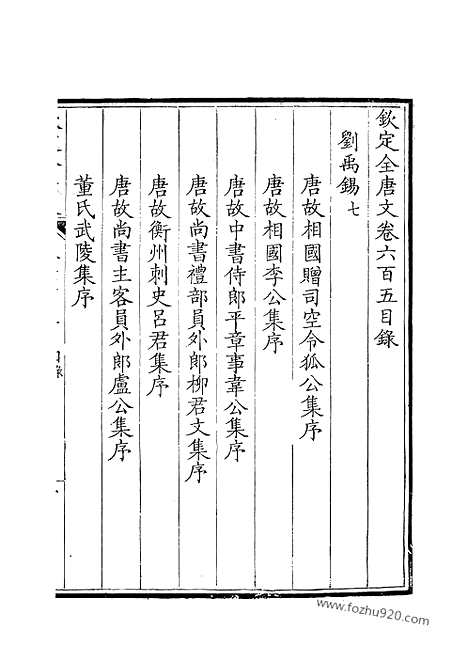 欽定全唐文卷六百五目錄
劉禹錫 七
唐故相國贈司空令狐公集序
唐故相國李公集序
唐故中書侍郎平章事韋公集序
唐故尚書禮部員外郎柳君文集序
唐故衡州刺史呂君集序
唐故尚書主客員外郎盧公集序
董氏武陵集序
www.fozhu920.com